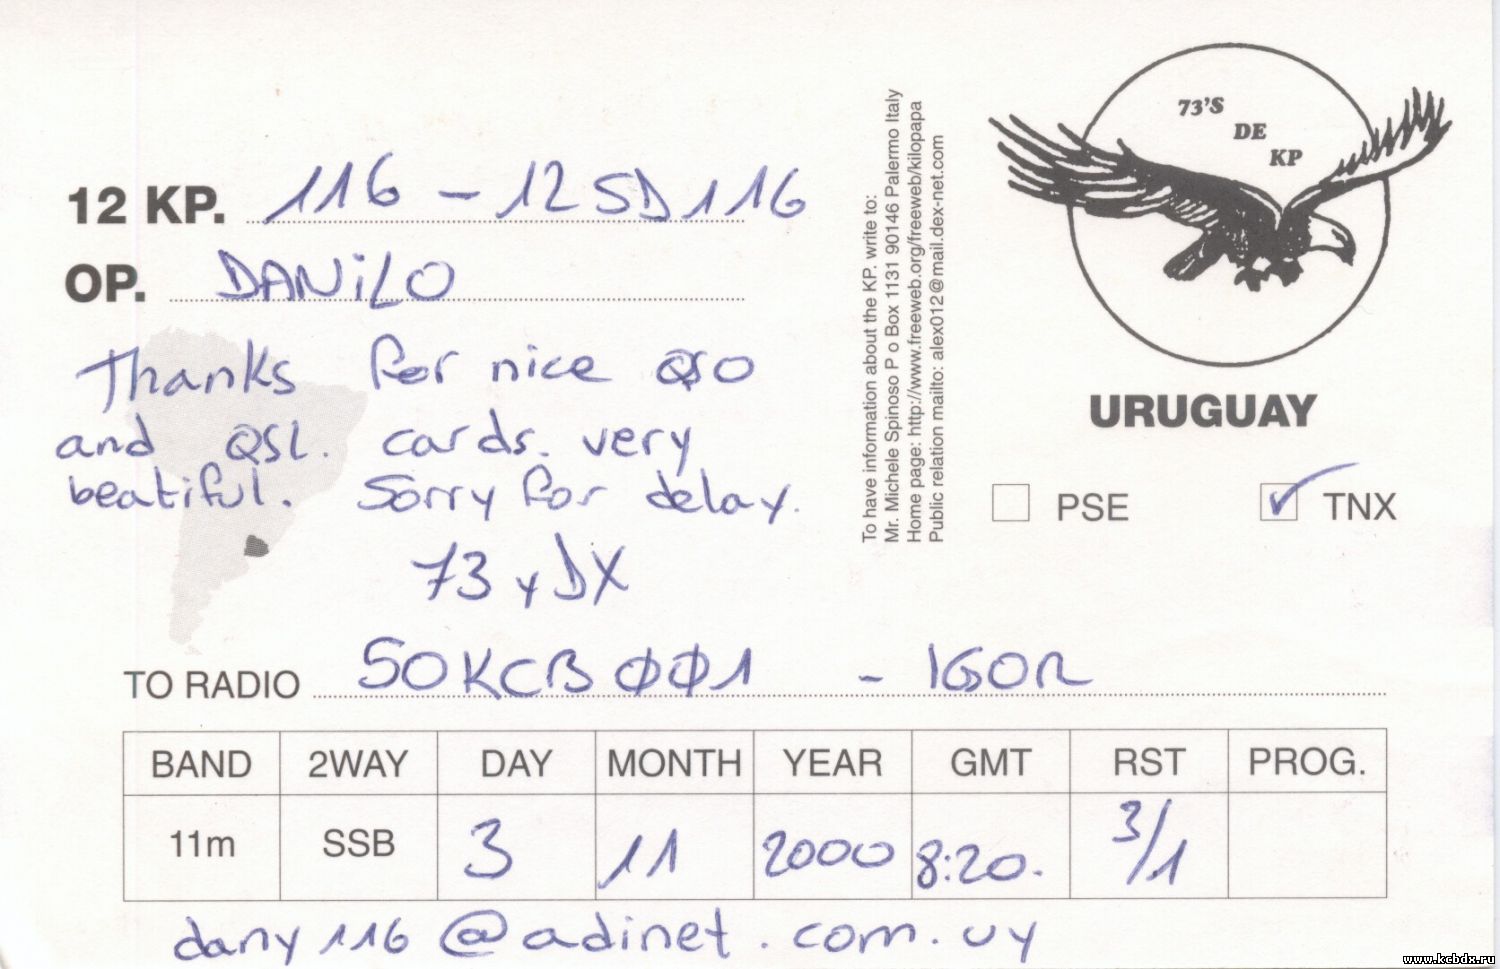 12 KP. 116 - 12SD116
OP. DANiLO
Thanks for nice QSO
and QSL. cards. very
beatiful. Sorry for delay.
73 y DX
To have information about the KP. write to:
Mr. Michele Spinoso P o Box 1131 90146 Palermo Italy
Home page: http://www.freeweb.org/freeweb/kilopapa
Public relation mailto: alex012@mail.dex-net.com
73'S
DE
KP
URUGUAY
PSE ✓ TNX
TO RADIO 50KCB001 - IGOR
BAND 2WAY DAY MONTH YEAR GMT RST PROG.
11m SSB 3 11 2000 8:20. 3/1
dany116@adinet.com.uy
www.kcbdx.ru